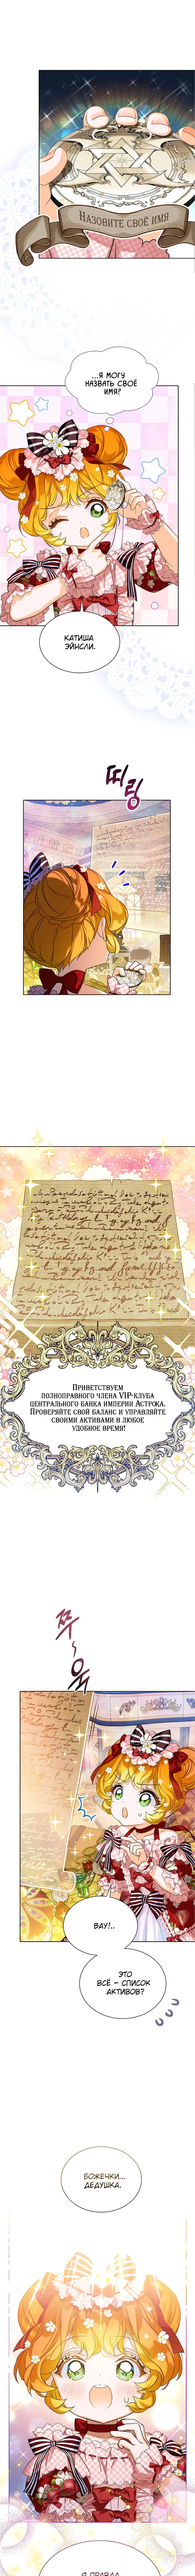 Назовите своё имя
...Я МОГУ
НАЗВАТЬ СВОЁ
ИМЯ?
КАТИША
ЭЙНСЛИ.
띠링
Приветствуем
полноправного члена VIP-клуба
центрального банка империи Астрока.
Проверяйте свой баланс и управляйте
своими активами в любое
удобное время!
쭈~욱
ВАУ!..
ЭТО
ВСЁ – СПИСОК
АКТИВОВ?
БОЖЕЧКИ...
ДЕДУШКА.
Я ПРАВДА